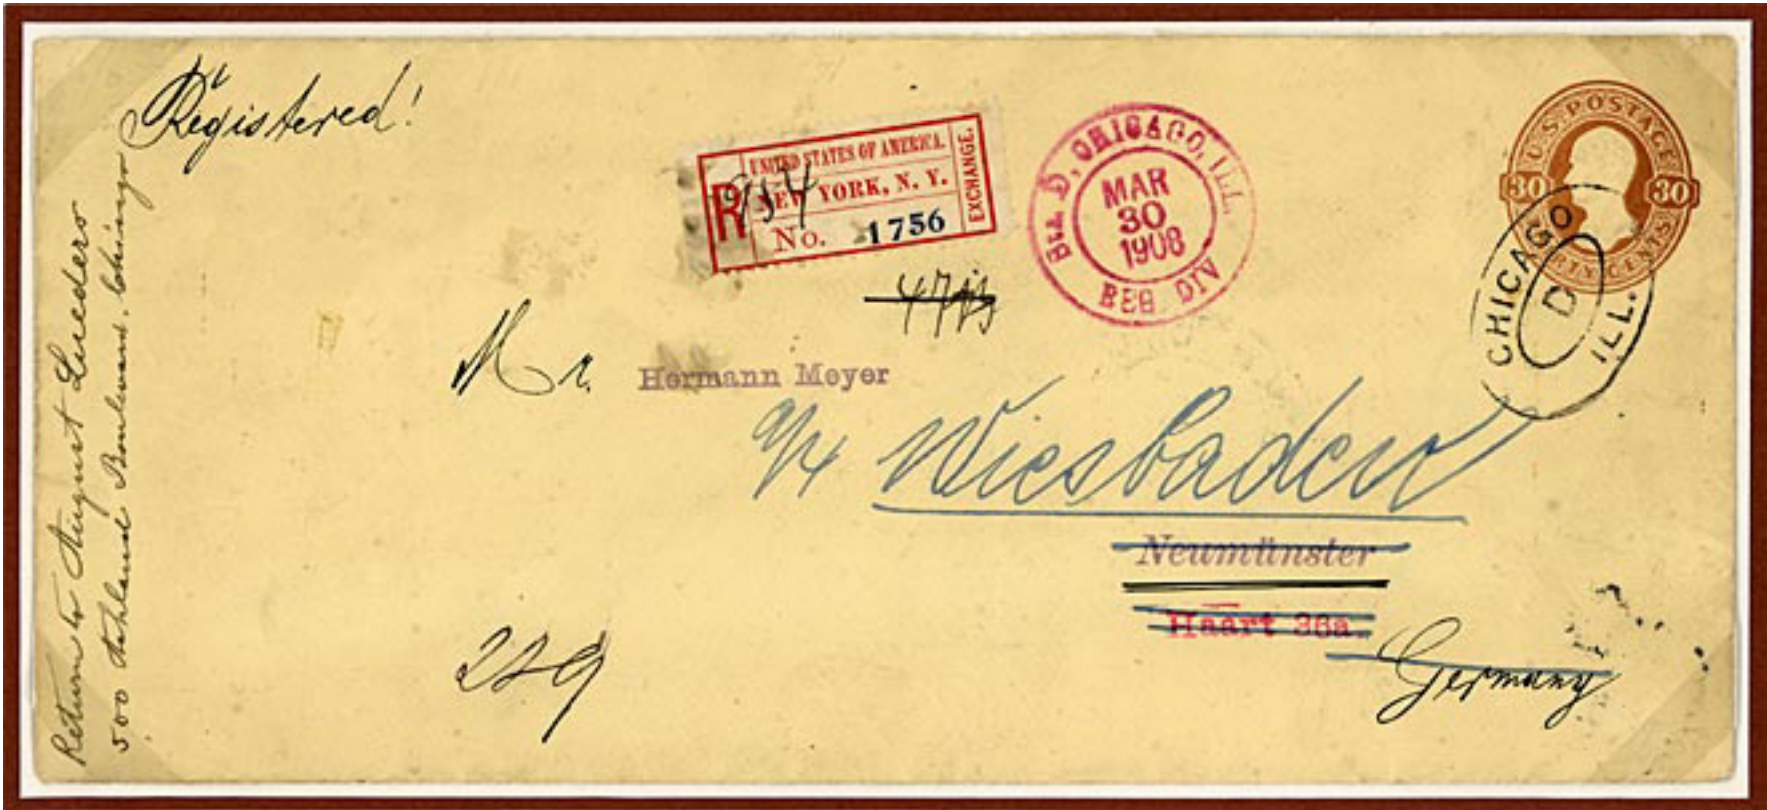 Registered!
Return to August Lueders
500 Ashland Boulevard. Chicago
R
UNITED STATES OF AMERICA.
NEW YORK, N. Y.
No. 1756
EXCHANGE.
954
Sta. D, CHICAGO, ILL.
MAR
30
1908
REG. DIV
U.S. POSTAGE
30 30
THIRTY CENTS
CHICAGO
D
ILL.
Mr. Hermann Meyer
Wiesbaden
Neumünster
Haart 36a.
Germany
229